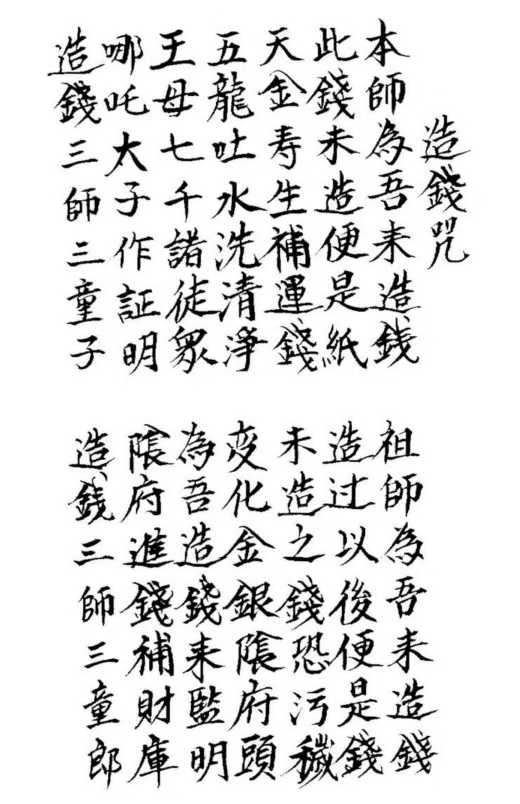 造錢咒
本師為吾来造銭
祖師為吾来造錢
此錢未造便是紙
造过以後便是錢
天金寿生補運錢
未造之錢恐污穢
五龍吐水洗清淨
变化金銀陰府頭
王母七千諸徒眾
為吾造錢来監明
哪吒太子作証明
陰府進錢補財庫
造錢三師三童子
造銭三師三童郎